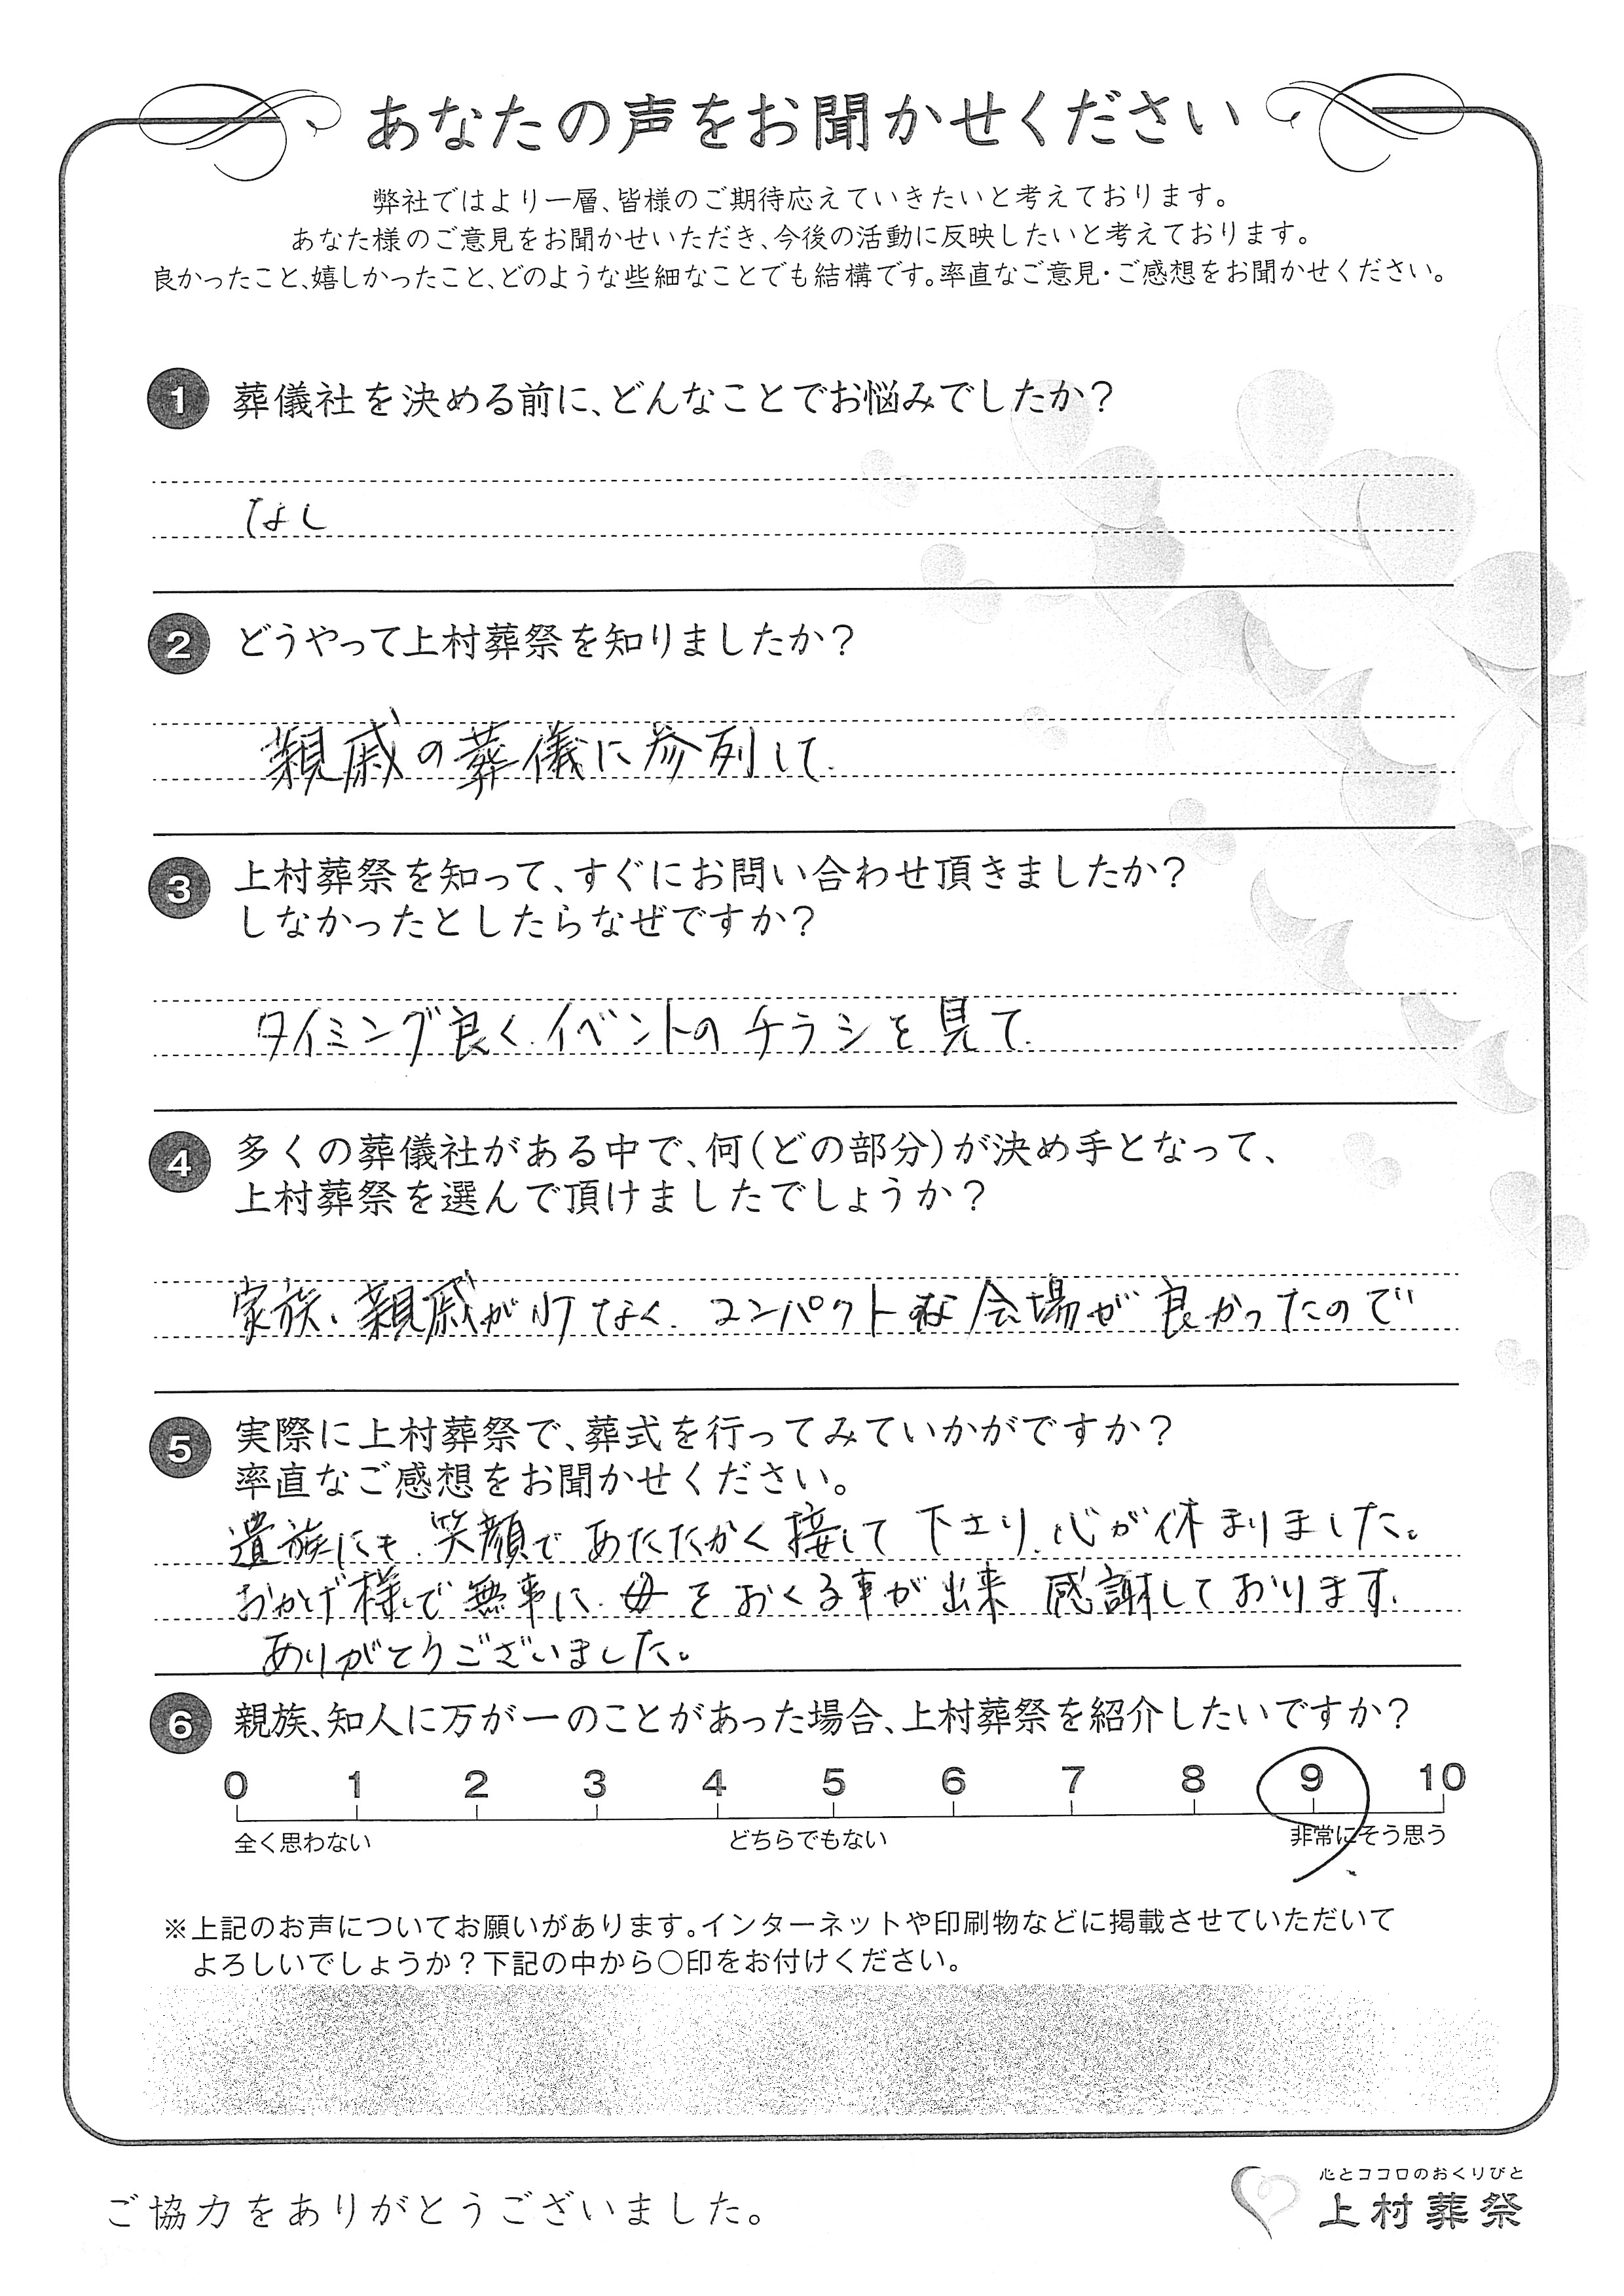 あなたの声をお聞かせください
弊社ではより一層、皆様のご期待応えていきたいと考えております。
あなた様のご意見をお聞かせいただき、今後の活動に反映したいと考えております。
良かったこと、嬉しかったこと、どのような些細なことでも結構です。率直なご意見・ご感想をお聞かせください。
1 葬儀社を決める前に、どんなことでお悩みでしたか?
なし
2 どうやって上村葬祭を知りましたか?
親戚の葬儀に参列して.
3 上村葬祭を知って、すぐにお問い合わせ頂きましたか?
しなかったとしたらなぜですか?
タイミング良く.イベントのチラシを見て.
4 多くの葬儀社がある中で、何(どの部分)が決め手となって、
上村葬祭を選んで頂けましたでしょうか?
家族、親戚が少なく.コンパクトな会場が良かったので
5 実際に上村葬祭で、葬式を行ってみていかがですか?
率直なご感想をお聞かせください。
遺族にも.笑顔であたたかく接して下さり.心が休まりました。
おかげ様で無事に.母をおくる事が出来 感謝しております.
ありがとうございました。
6 親族、知人に万が一のことがあった場合、上村葬祭を紹介したいですか?
0 1 2 3 4 5 6 7 8 9 10
全く思わない どちらでもない 非常にそう思う
※上記のお声についてお願いがあります。インターネットや印刷物などに掲載させていただいて
よろしいでしょうか?下記の中から○印をお付けください。
ご協力をありがとうございました。
心とココロのおくりびと
上村葬祭